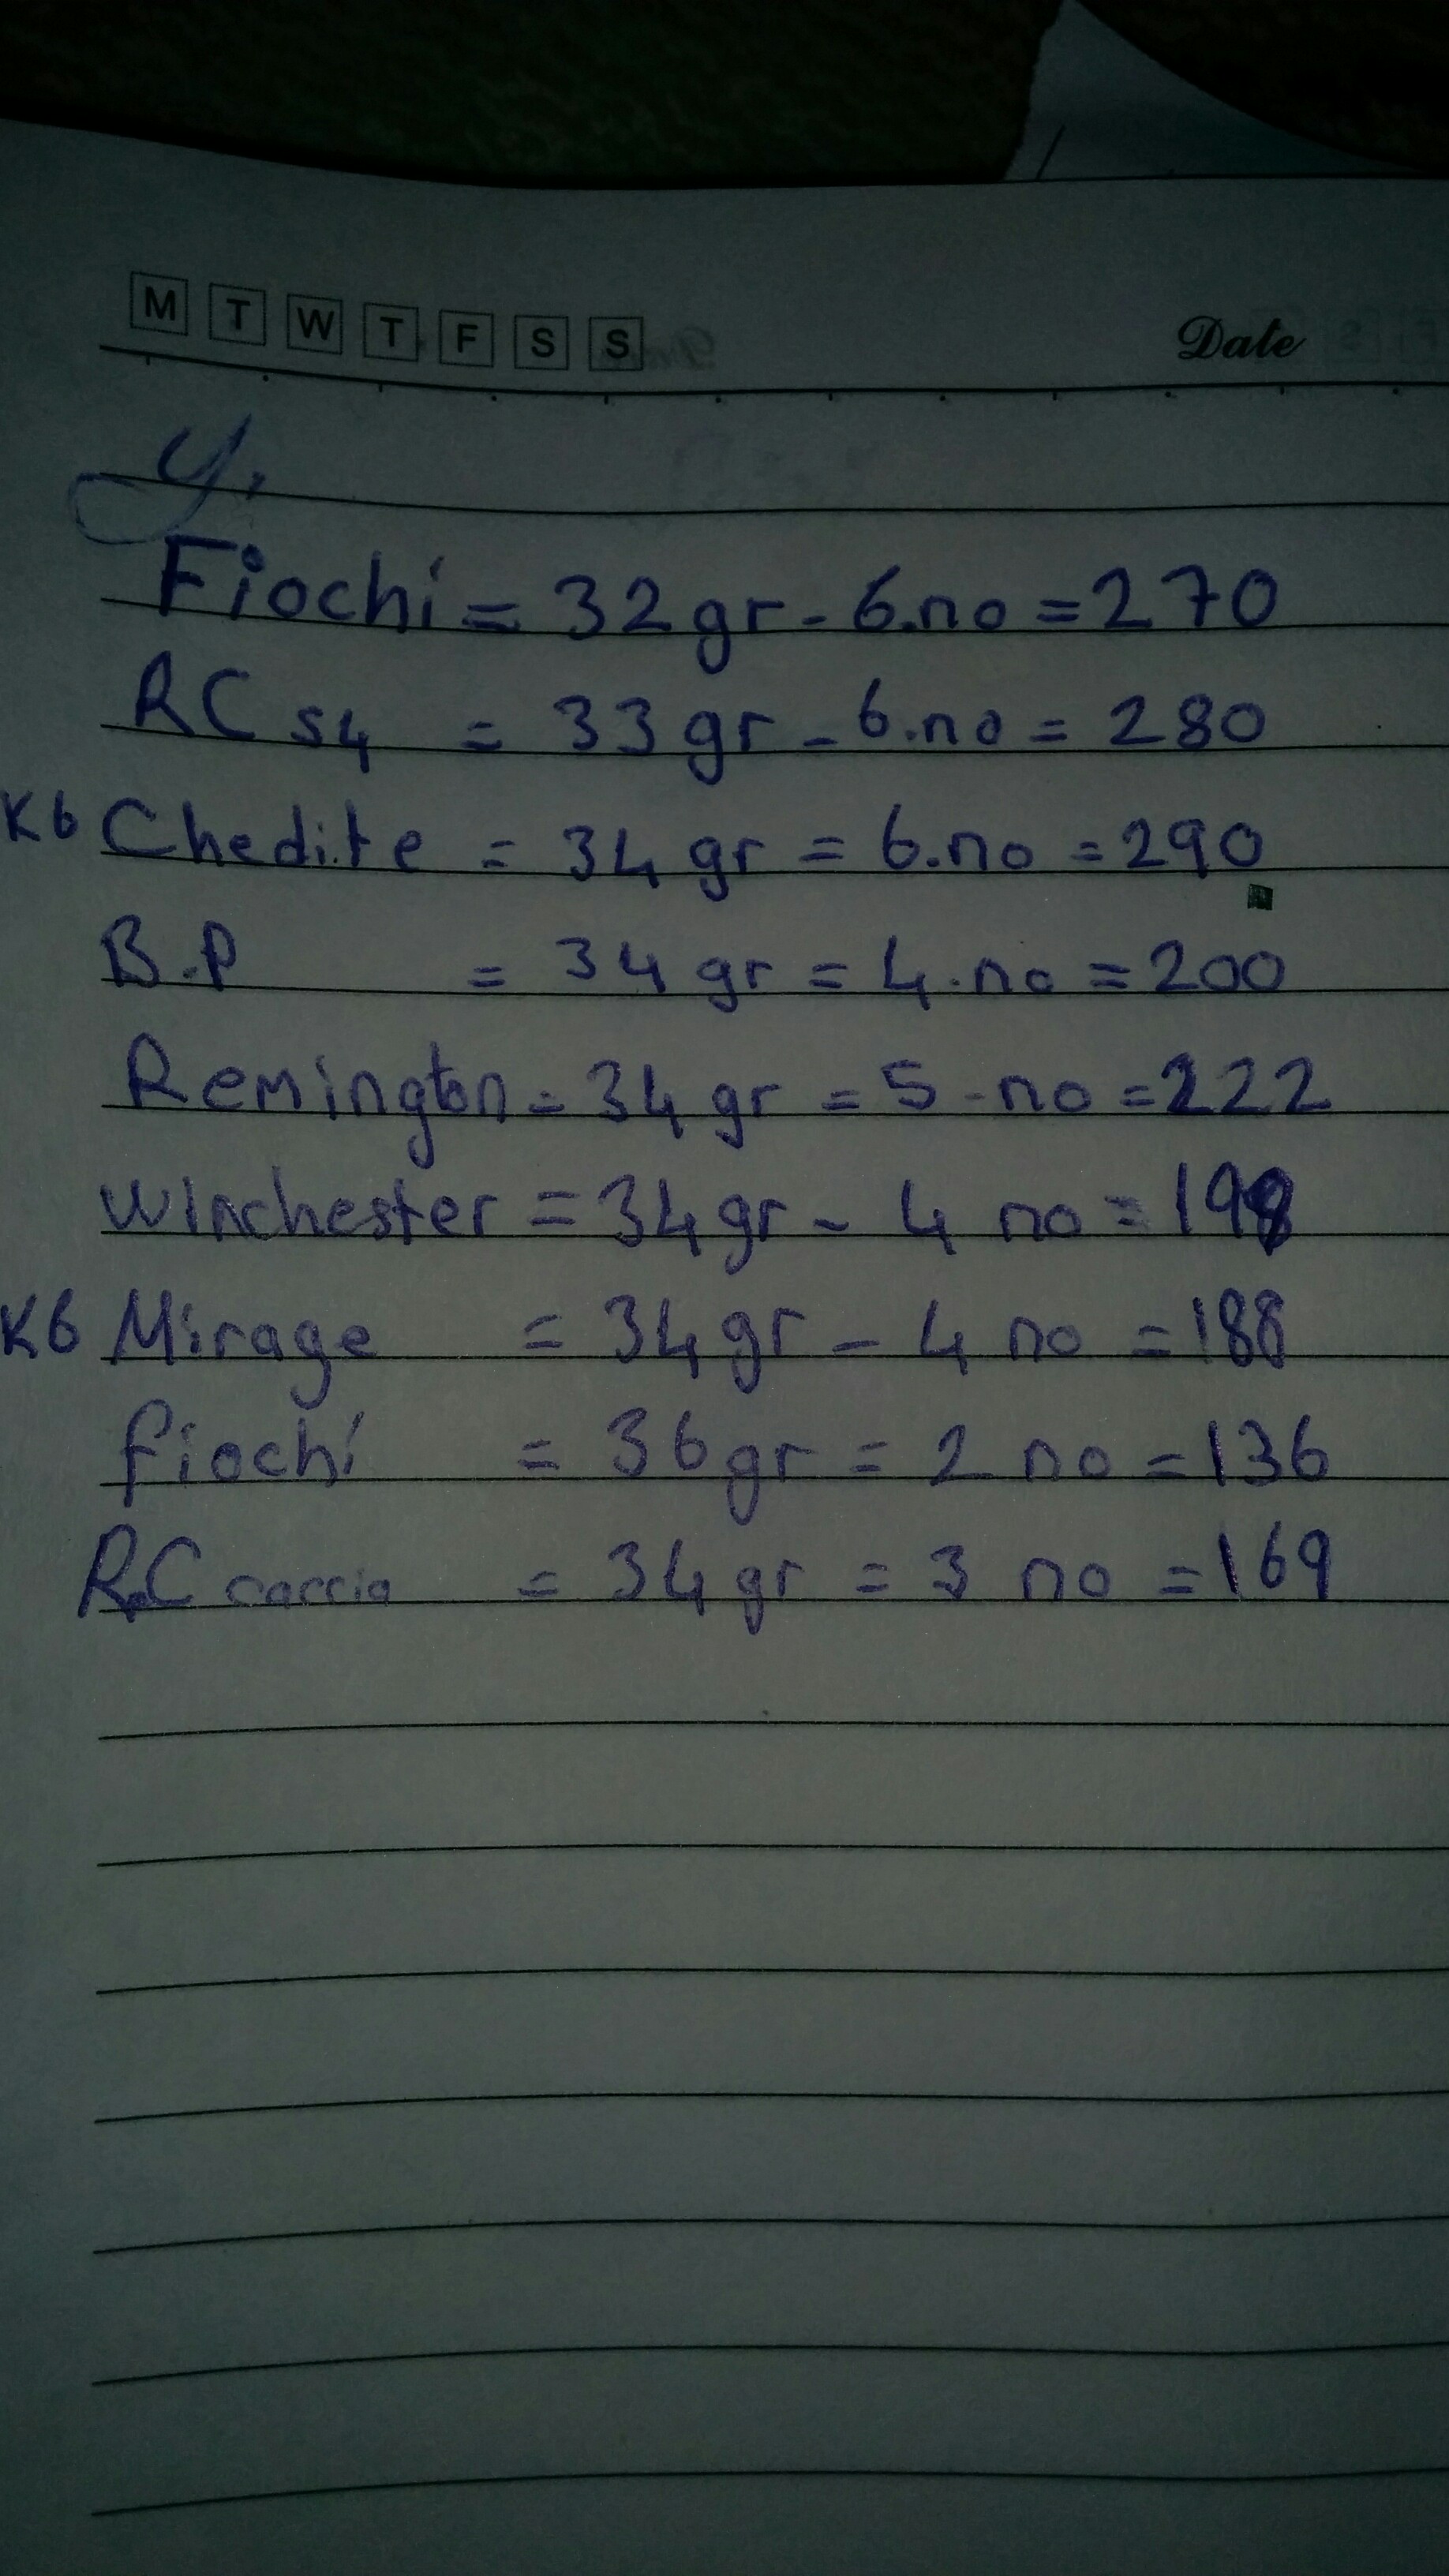 M T W T F S S Date
y,
Fiochi = 32 gr - 6.no = 270
RC S4 = 33 gr - 6.no = 280
K6 Chedite = 34 gr = 6.no = 290
B.P = 34 gr = 4.no = 200
Remington = 34 gr = 5-no = 222
Winchester = 34 gr - 4 no =
K6 Mirage = 34 gr - 4 no = 188
fiochi = 36 gr = 2 no = 136
R.C caccia = 34 gr = 3 no = 169